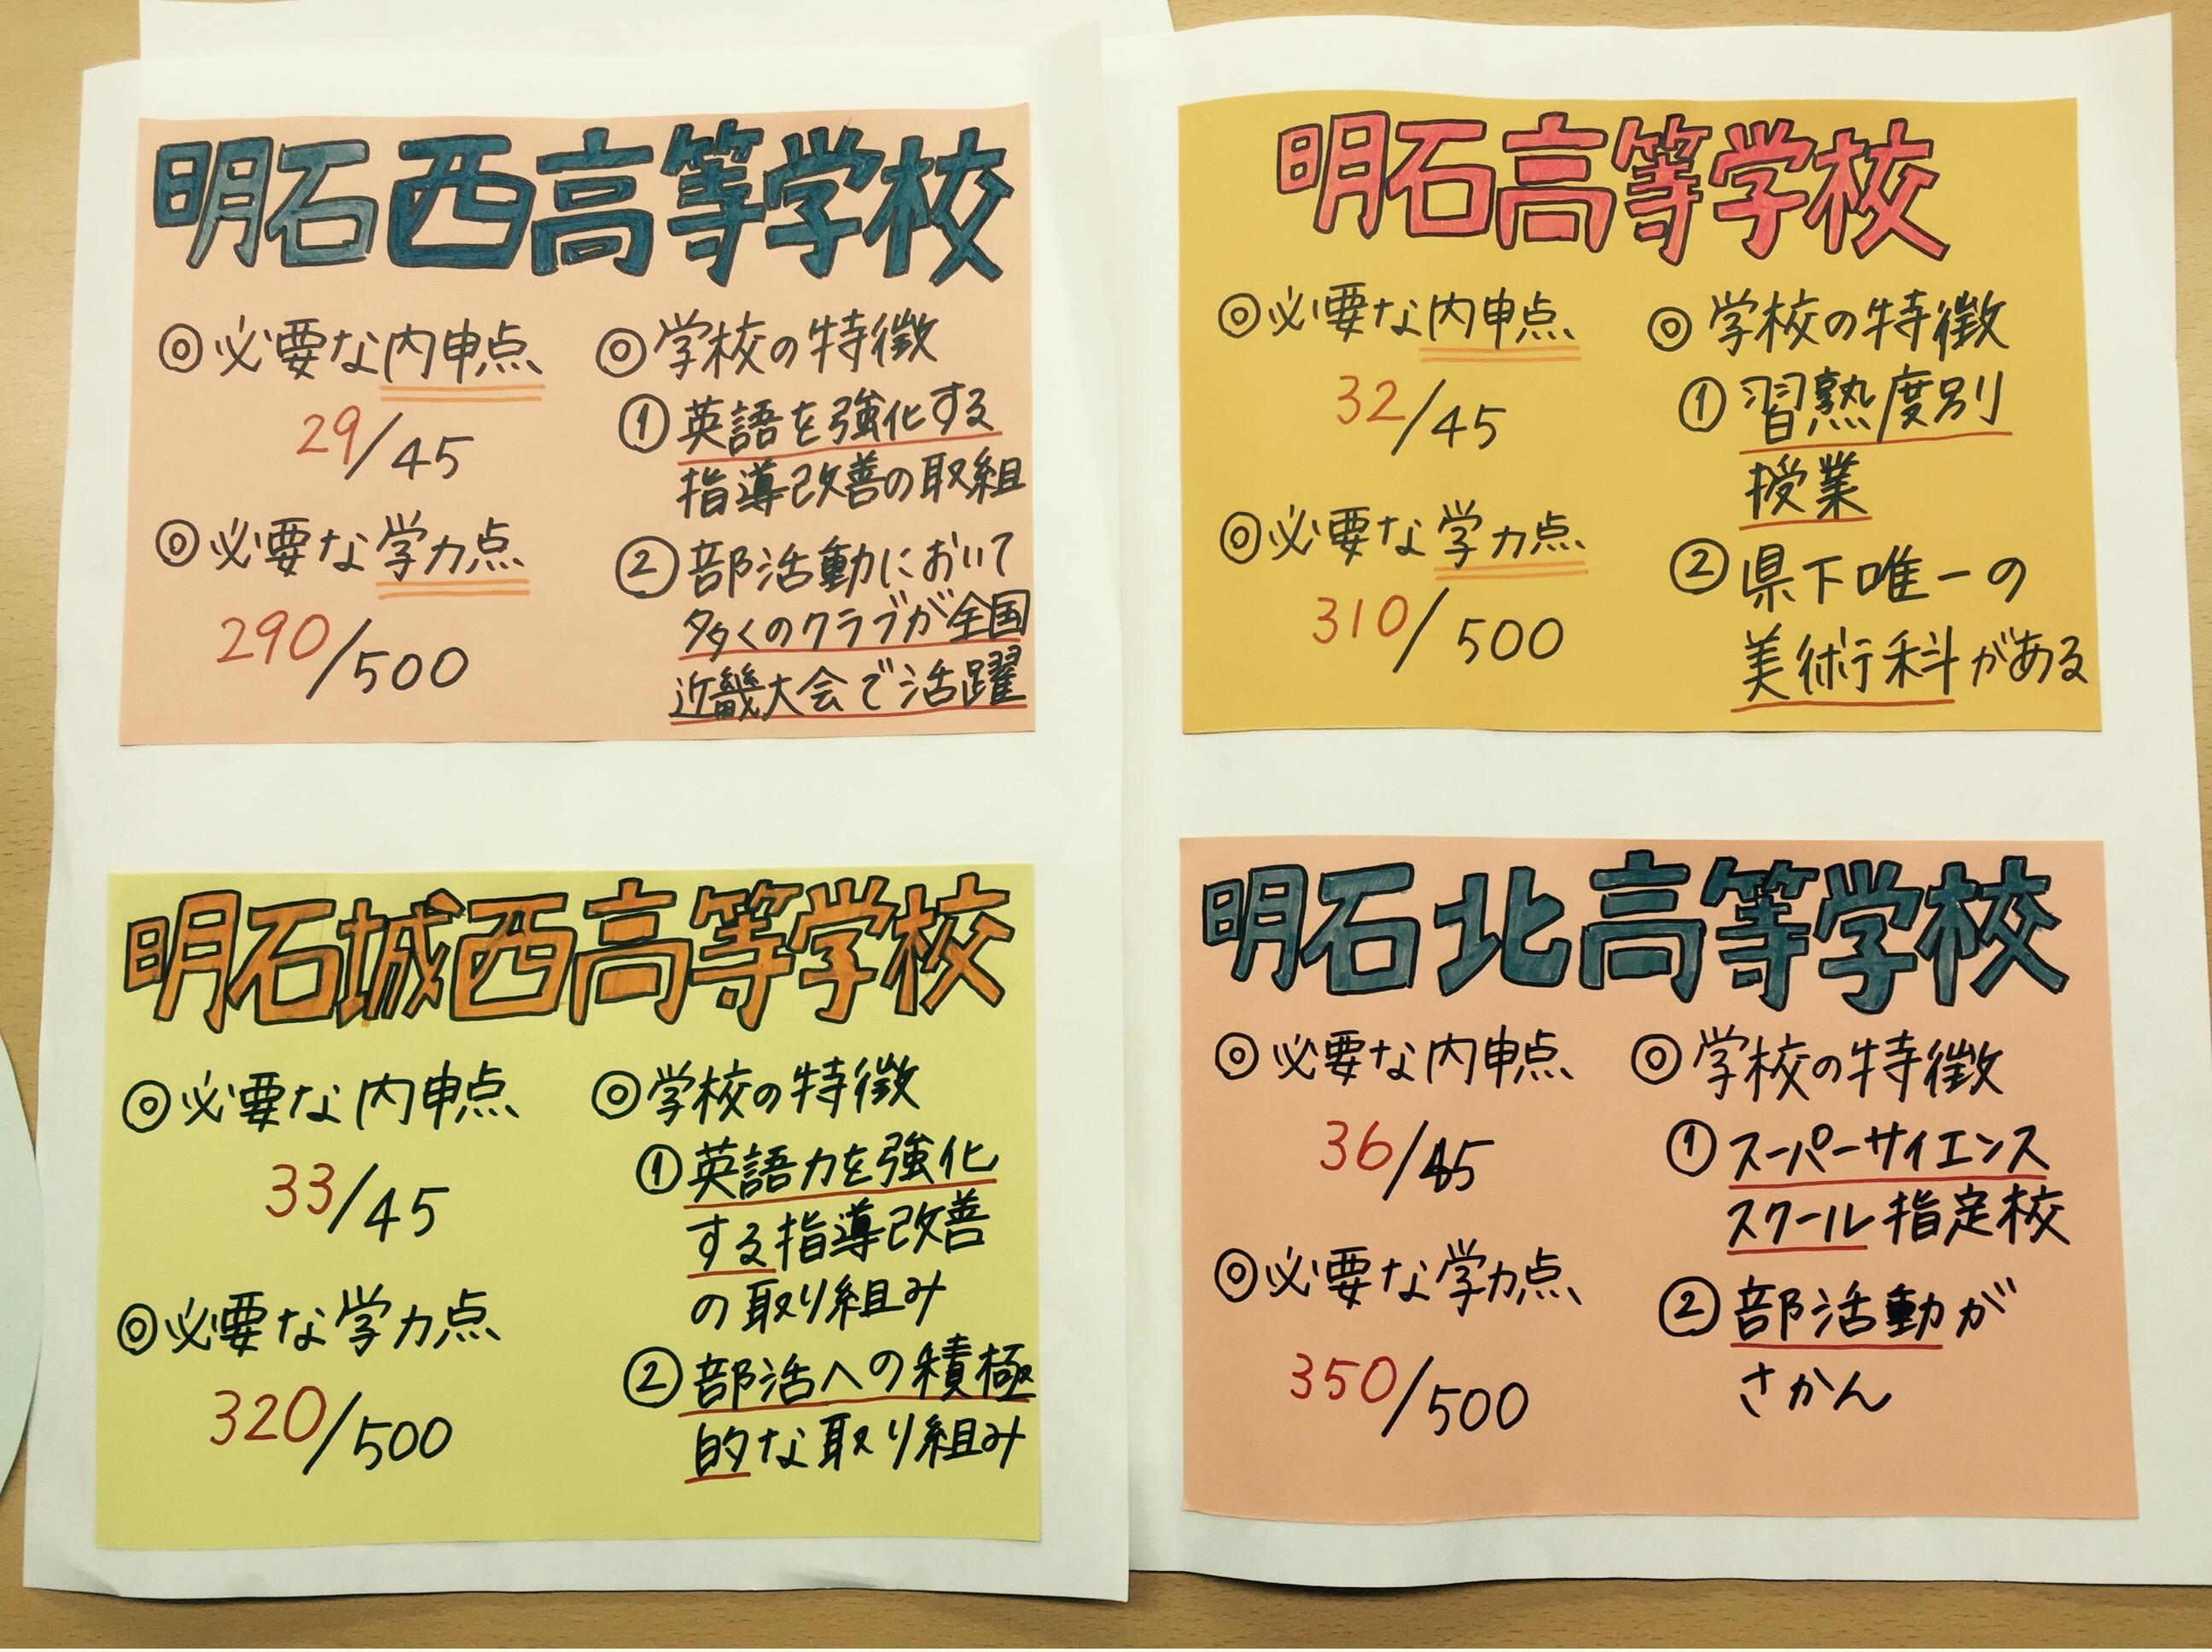 明石西高等学校
◎必要な内申点
29/45
◎必要な学力点
290/500
◎学校の特徴
①英語を強化する
指導改善の取組
②部活動において
多くのクラブが全国
近畿大会で活躍
明石高等学校
◎必要な内申点
32/45
◎必要な学力点
310/500
◎学校の特徴
①習熟度別
授業
②県下唯一の
美術科がある
明石城西高等学校
◎必要な内申点
33/45
◎必要な学力点
320/500
◎学校の特徴
①英語力を強化
する指導改善
の取り組み
②部活への積極
的な取り組み
明石北高等学校
◎必要な内申点
36/45
◎必要な学力点
350/500
◎学校の特徴
①スーパーサイエンス
スクール指定校
②部活動が
さかん